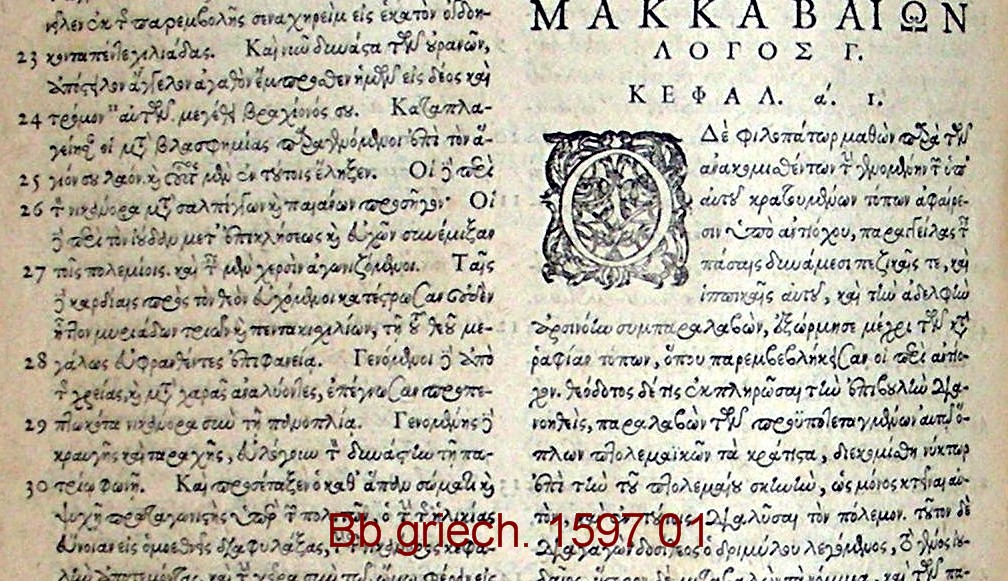 νῆλεν ἐκ τῆς παρεμβολῆς σεναχηρεὶμ εἰς ἑκατὸν ὀγδοη-
23 κονταπέντε χιλιάδας. Καὶ νῦν δυνάστα τῶν οὐρανῶν,
ἀπόστειλον ἄγγελον ἀγαθὸν ἔμπροσθεν ἡμῶν εἰς δέος καὶ
24 τρόμον αὐτῶν. μεγέθει βραχίονός σου. Καταπλα-
γείησαν οἱ μετὰ βλασφημίας παραγενόμενοι ἐπὶ τὸν ἅ-
25 γιόν σου λαόν. καὶ οὗτος μὲν ἐν τούτοις ἔληξεν. Οἱ δὲ περὶ
26 τὸν νικάνορα μετὰ σαλπίγγων καὶ παιάνων προσῆγον· Οἱ
δὲ περὶ τὸν ἰούδαν μετ' ἐπικλήσεως καὶ εὐχῶν συνέμιξαν
27 τοῖς πολεμίοις. καὶ ταῖς μὲν χερσὶν ἀγωνιζόμενοι. Ταῖς
δὲ καρδίαις πρὸς τὸν θεὸν εὐχόμενοι κατέστρωσαν οὐδὲν
ἧττον μυριάδων τριῶν καὶ πεντακισχιλίων, τῇ τοῦ θεοῦ με-
28 γάλως εὐφρανθέντες ἐπιφανείᾳ. Γενόμενοι δὲ ἀπὸ
τῆς χρείας, καὶ μετὰ χαρᾶς ἀναλύοντες, ἐπέγνωσαν προπε-
29 πτωκότα νικάνορα σὺν τῇ πανοπλίᾳ. Γενομένης δὲ
κραυγῆς καὶ ταραχῆς, εὐλόγουν τὸν δυνάστην τῇ πα-
30 τρίῳ φωνῇ. Καὶ προσέταξεν ὁ καθ' ἅπαν σώματι καὶ
ψυχῇ πρωταγωνιστὴς ὑπὲρ τῶν πολιτῶν, ὁ τὴν τῆς ἡλικίας
εὔνοιαν εἰς ὁμοεθνεῖς διαφυλάξας, κεφα-
ΜΑΚΚΑΒΑΙΩΝ
ΛΟΓΟΣ Γ.
ΚΕΦΑΛ. α΄. 1.
Ο Δὲ φιλοπάτωρ μαθὼν παρὰ τῶν
ἀνακομισθέντων τὴν γενομένην τῶν ὑπ'
αὐτοῦ κρατουμένων τόπων ἀφαίρε-
σιν ὑπὸ ἀντιόχου, παραγγείλας ταῖς
πάσαις δυνάμεσι πεζικαῖς τε, καὶ
ἱππικαῖς αὐτοῦ, καὶ τὴν ἀδελφὴν
ἀρσινόην συμπαραλαβὼν, ἐξώρμησε μέχρι τῶν κατὰ
ῥαφίαν τόπων, ὅπου παρεμβεβλήκεισαν οἱ περὶ ἀντίο-
χον. θεόδοτος δέ τις ἐκπληρῶσαι τὴν ἐπιβουλὴν δια-
νοηθεὶς, παραλαβὼν τῶν προϋποτεταγμένων αὐτῷ ὅ-
πλων πτολεμαϊκῶν τὰ κράτιστα, διεκομίσθη νύκτωρ
ἐπὶ τὴν τοῦ πτολεμαίου σκηνὴν, ὡς μόνος κτεῖναι αὐ-
τὸν, καὶ ἐν τούτῳ διαλῦσαι τὸν πόλεμον. τοῦτον δὲ
διαγαγὼν δοσίθεος ὁ δριμύλου λεγόμενος, τὸ γένος ἰου-
δαῖος, ὕστερον δὲ μεταβαλὼν τὰ νόμιμα, καὶ τῶν πα-
Bb griech. 1597 01